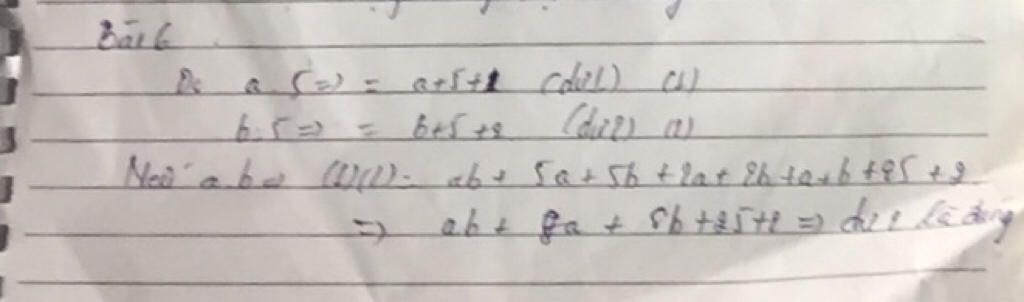 Bài 6
Do a : 5 => = a+5+1 (dư 1) (1)
b : 5 => = b+5+2 (dư 2) (2)
Nếu a.b => (1)(2) = ab + 5a + 5b + 2a + 2b + a + b + 25 + 2
=> ab + 8a + 8b + 25 + 2 => dư 2 là đúng